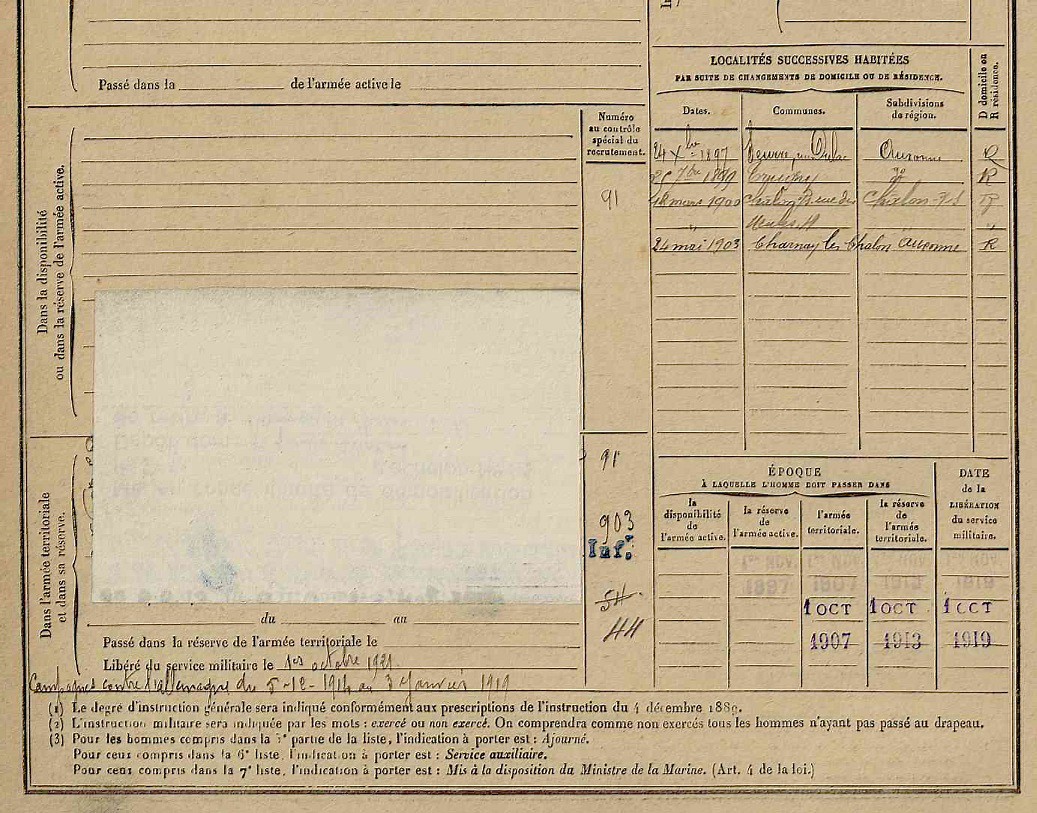 Passé dans la ______ de l'armée active le ______
Dans la disponibilité
ou dans la réserve de l'armée active.
Numéro
au contrôle
spécial du
recrutement.
91
91
903
Inf.
54
44
Dans l'armée territoriale
et dans sa réserve.
du ______ au ______
Passé dans la réserve de l'armée territoriale le
Libéré du service militaire le 1er octobre 1921
Campagnes contre l'allemagne du 5-12-1914 au 3 Janvier 1919
LOCALITÉS SUCCESSIVES HABITÉES
PAR SUITE DE CHANGEMENTS DE DOMICILE OU DE RÉSIDENCE.
D domicile ou
R résidence.
Dates. Communes. Subdivisions
de région.
24 Xbre 1897 Auxonne R
7bre 1899 R
18 mars 1900 Chalon Rue des Châlon s/S R
24 mai 1903 Charnay les Chalon Auxonne R
ÉPOQUE
À LAQUELLE L'HOMME DOIT PASSER DANS
DATE
de la
LIBÉRATION
du service
militaire.
la
disponibilité
de
l'armée active.
la réserve
de
l'armée active.
l'armée
territoriale.
la réserve
de
l'armée
territoriale.
1 OCT 1 OCT 1 OCT
1907 1913 1919
(1) Le degré d'instruction générale sera indiqué conformément aux prescriptions de l'instruction du 4 décembre 1889.
(2) L'instruction militaire sera indiquée par les mots : exercé ou non exercé. On comprendra comme non exercés tous les hommes n'ayant pas passé au drapeau.
(3) Pour les hommes compris dans la 5e partie de la liste, l'indication à porter est : Ajourné.
Pour ceux compris dans la 6e liste, l'indication à porter est : Service auxiliaire.
Pour ceux compris dans la 7e liste, l'indication à porter est : Mis à la disposition du Ministre de la Marine. (Art. 4 de la loi.)